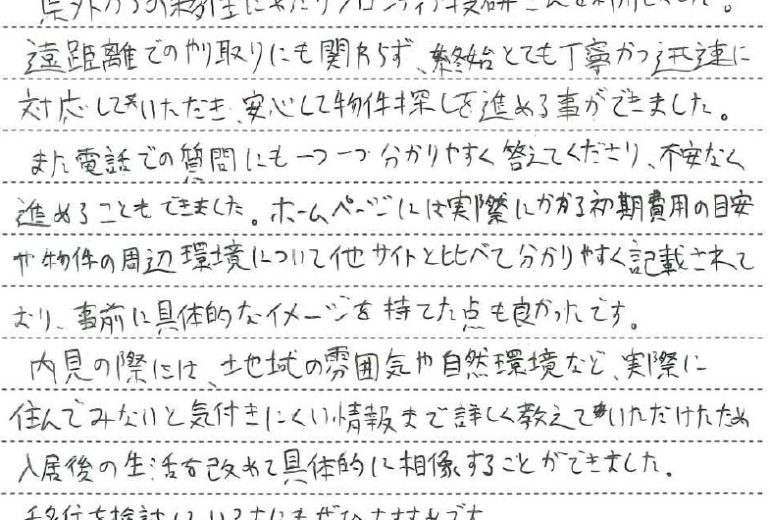 県外からの移住にあたりフロンティア技研さんを利用しました。
遠距離でのやり取りにも関わらず、終始とても丁寧かつ迅速に
対応していただき、安心して物件探しを進める事ができました。
また電話での質問にも一つ一つ分かりやすく答えてくださり、不安なく
進めることもできました。ホームページには実際にかかる初期費用の目安
や物件の周辺環境について他サイトと比べて分かりやすく記載されて
おり、事前に具体的なイメージを持てた点も良かったです。
内見の際には、土地域の雰囲気や自然環境など、実際に
住んでみないと気付きにくい情報まで詳しく教えていただけたため
入居後の生活を改めて具体的に想像することができました。
移住を検討している方にもぜひおすすめです